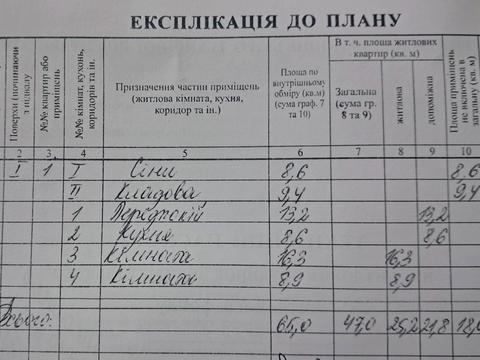 ЕКСПЛІКАЦІЯ ДО ПЛАНУ
Поверхи (починаючи з підвалу
№№ квартир або приміщень
№№ кімнат, кухонь, коридорів та ін.
Призначення частин приміщень (житлова кімната, кухня, коридор та ін.)
Площа по внутрішньому обміру (кв.м) (сума граф. 7 та 10)
В т. ч. площа житлових квартир (кв. м)
Загальна (сума гр. 8 та 9)
житлова
допоміжна
Площа приміщень не включена в загальну
2 3 4 5 6 7 8 9 10
I 1 I Сіни 8,6 8,6
II Кладова 9,4 9,4
1 13,2 13,2
2 Кухня 8,6 8,6
3 Кімната 16,3 16,3
4 Кімната 8,9 8,9
Всього: 65,0 47,0 25,2 21,8 18,0